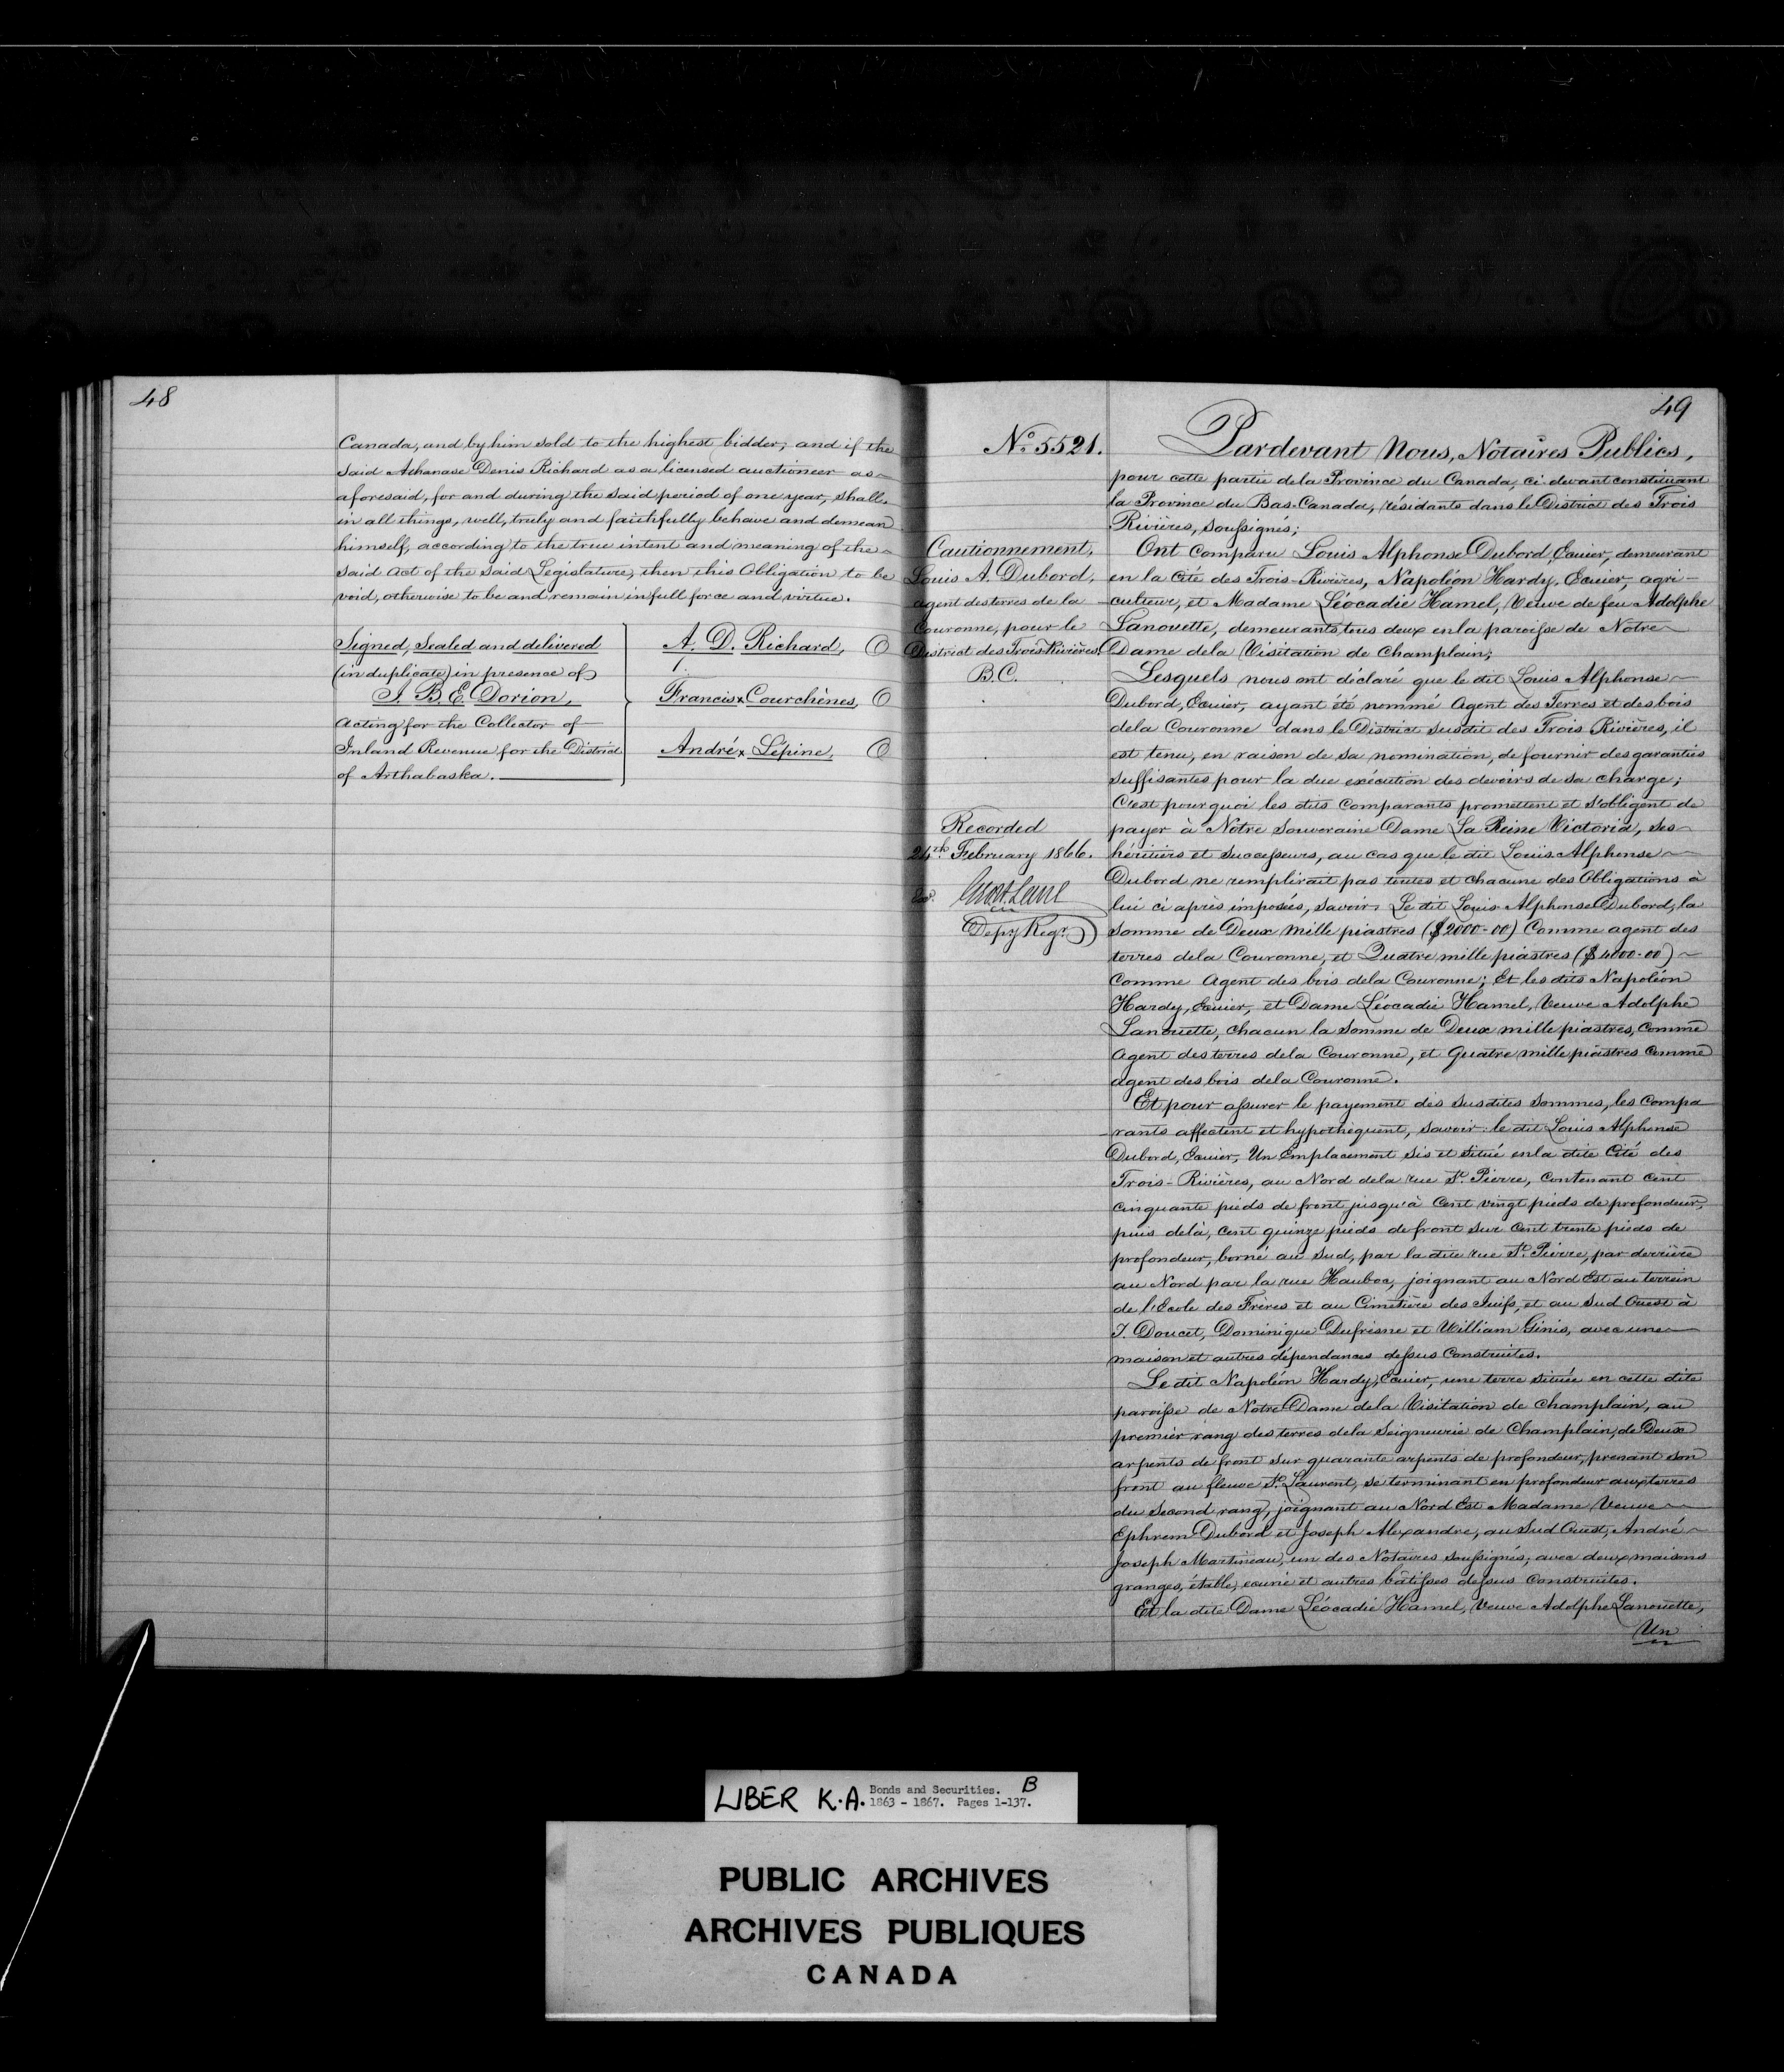 48
Canada, and by him sold to the highest bidder; and if the
said Athanase Denis Richard as a licensed auctioneer as
aforesaid, for and during the said period of one year, shall,
in all things, well, truly and faithfully behave and demean
himself, according to the true intent and meaning of the
said Act of the said Legislature, then this Obligation to be
void, otherwise to be and remain in full force and virtue.
Signed, Sealed and delivered
(in duplicate) in presence of
J. B. E. Dorion,
Acting for the Collector of
Inland Revenue for the District
of Arthabaska.
A. D. Richard, O
Francis x Courchènes, O
André x Lépine, O
49
No. 5521.
Cautionnement,
Louis A. Dubord,
agent des terres de la
Couronne, pour le
District des Trois-Rivières,
B.C.
Recorded
24th February 1866.
Depy Regr.
Pardevant Nous, Notaires Publics,
pour cette partie de la Province du Canada, ci devant constituant
la Province du Bas-Canada, résidants dans le District des Trois
Rivières, soussignés;
Ont Comparu Louis Alphonse Dubord, Ecuier, demeurant
en la Cité des Trois-Rivières, Napoléon Hardy, Ecuier, agri-
culteur, et Madame Léocadie Hamel, Veuve de feu Adolphe
Lanouette, demeurants tous deux en la paroisse de Notre
Dame de la Visitation de Champlain;
Lesquels nous ont déclaré que le dit Louis Alphonse
Dubord, Ecuier, ayant été nommé Agent des Terres et des bois
de la Couronne dans le District susdit des Trois Rivières, il
est tenu, en raison de sa nomination, de fournir des garanties
suffisantes pour la due exécution des devoirs de sa charge;
C'est pourquoi les dits Comparants promettent et s'obligent de
payer à Notre Souveraine Dame La Reine Victoria, ses
héritiers et successeurs, au cas que le dit Louis Alphonse
Dubord ne remplirait pas toutes et chacune des Obligations à
lui ci après imposées, savoir: Le dit Louis Alphonse Dubord, la
somme de Deux Mille piastres ($2000-00) Comme agent des
terres de la Couronne, et Quatre mille piastres ($4000-00)
Comme Agent des bois de la Couronne; Et les dits Napoléon
Hardy, Ecuier, et Dame Léocadie Hamel, Veuve Adolphe
Lanouette, chacun la somme de Deux mille piastres, Comme
Agent des terres de la Couronne, et Quatre mille piastres Comme
agent des bois de la Couronne.
Et pour assurer le payement des susdites sommes, les Compa
-rants affectent et hypothèquent, savoir: le dit Louis Alphonse
Dubord, Ecuier, Un Emplacement sis et situé en la dite Cité des
Trois-Rivières, au Nord de la rue St. Pierre, Contenant cent
cinquante pieds de front jusqu'à Cent vingt pieds de profondeur,
puis delà, cent quinze pieds de front sur Cent trente pieds de
profondeur, borné au Sud, par la dite rue St. Pierre, par derrière
au Nord par la rue Haubec, joignant au Nord Est au terrein
de l'Ecole des Frères et au Cimetière des Juifs, et au Sud Ouest à
J. Doucet, Dominique Dufresne et William Ginis, avec une
maison et autres dépendances dessus Construites.
Le dit Napoléon Hardy, Ecuier, une terre située en cette dite
paroisse de Notre Dame de la Visitation de Champlain, au
premier rang des terres de la Seigneurie de Champlain, de Deux
arpents de front sur quarante arpents de profondeur, prenant son
front au fleuve St. Laurent, se terminant en profondeur aux terres
du Second rang, joignant au Nord Est Madame Veuve
Ephrem Dubord et Joseph Alexandre, au Sud Ouest, André
Joseph Martineau, un des Notaires soussignés; avec deux maisons
granges, étable, ecurie et autres bâtisses dessus Construites.
Et la dite Dame Léocadie Hamel, Veuve Adolphe Lanouette,
Un
LIBER K.A. Bonds and Securities. B
1863 - 1867. Pages 1-137.
PUBLIC ARCHIVES
ARCHIVES PUBLIQUES
CANADA